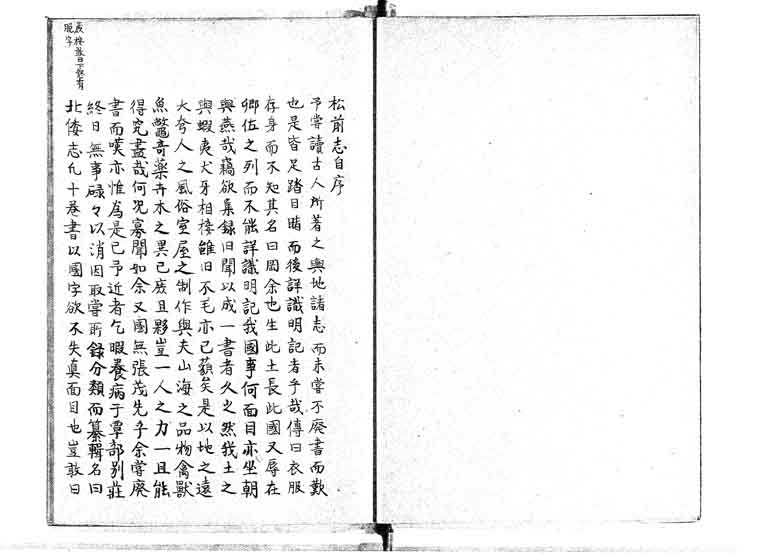 松前志自序
予嘗讀古人所著之輿地諸志而未嘗不廢書而歎
也是皆足踏目睹而後詳識明記者乎哉傳曰衣服
存身而不知其名曰罔余也生此土長此國又辱在
卿佐之列而不能詳識明記我國事何面目亦坐朝
與燕哉竊欲集録旧聞以成一書者久之然我土之
與蝦夷犬牙相接雖旧不毛亦已藐矣是以地之遠
大夸人之風俗室屋之制作與夫山海之品物禽獸
魚鼈奇藥卉木之異已廣且夥豈一人之力一且能
得究盡哉何况寡聞如余又國無張茂先乎余嘗廢
書而嘆亦惟為是已予近者乞暇養病于覃部別莊
終日無事碌々以消因取嘗所録分類而纂輯名曰
北倭志凡十巻書以國字欲不失真面目也豈敢曰